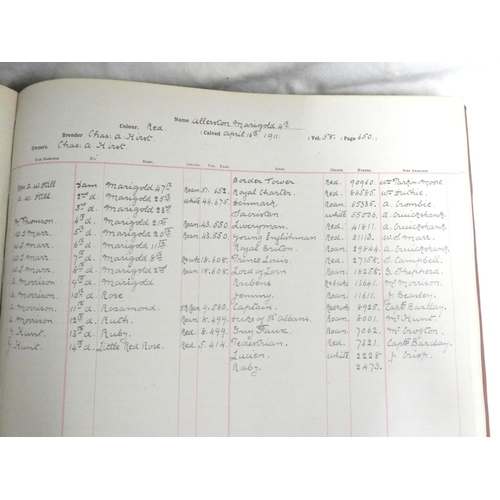 Name Allerston Marigold 4th
Colour. Red
Breeder Chas: A. Hirst : Calved April 16th 1911 : Vol. 58. : Page 650.
Owners. Chas: A Hirst
Border Tower. Red. 90960. Wm Parkin Moore.
A. W. Hill Dam Marigold 47th Roan. 51. 652. Royal Charter. Red. 84585. Wm Duthie.
A. W. Hill 2nd d. Marigold 25th White 44. 675. Denmark. Roan. A. Crombie
3rd d. Marigold Sacristan White A. Cruickshank.
Thomson. 4th d. Marigold 21st Roan. 43. 550. Liveryman. Red. 41811. A. Cruickshank.
W. S. Marr. 5th d. Marigold 20th Roan. 43. 550. Young Englishman Red. 31113. W. S. Marr.
W. S. Marr. 6th d. Marigold 11th Royal Briton Roan. A. Cruickshank.
W. S. Marr. 7th d. Marigold 8th R&W 18. 608. Prince Louis. Red. 27158. J. Campbell.
W. S. Marr. 8th d. Marigold 2nd Roan. 18. 608. Lord of Lorn Roan. 18258. G. Shepherd.
A. Morrison 9th d. Marigold Rubens 13641. Mr Morrison
A. Morrison. 10th d. Rose Jemmy. Roan. 11611. J. Beasley.
A. Morrison. 11th d. Rosamond. 9. 560. Captain. 8925. Capt. Barclay
A. Morrison. 12th d. Ruth. Roan. 8. 499. Duke of St Albans. Roan. 8001. Mr Hunt.
J. Hunt. 13th d. Ruby. Red. 8. 499. Guy Faux. Roan. 7062. Mr Crofton
J. Hunt. 14th d. Little Red Rose. Red. 5. 414. Pedestrian. Red. 7321. Capt. Barclay
Lucien. White. 2228. J. Crisp.
Raby. 2473.